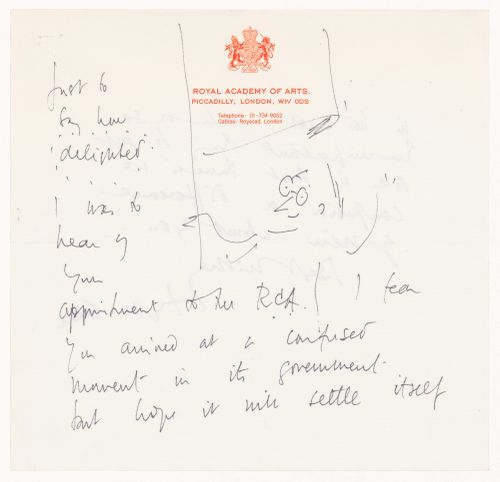 ROYAL ACADEMY OF ARTS.
PICCADILLY, LONDON, W1V 0DS
Telephone: 01-734 9052
Cables: Royacad, London
Just to
say how
delighted
I was to
hear of
your
appointment to the RCA! I fear
you arrived at a confused
moment in its government.
but hope it will settle itself